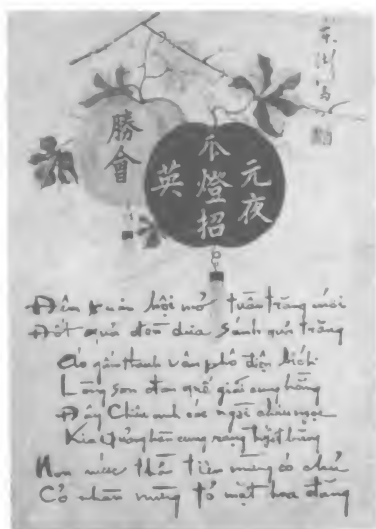 元夜
瓜燈招
英
勝會
Đêm xuân hội mở tuần trăng mới
Đốt quả đèn dưa sánh quả trăng
Áo gấm thanh vân phô điện bích
Lòng son đan quế giãi cung hằng
Đây Chiêu anh các ngời châu ngọc
Kìa Quảng hàn cung rạng tuyết băng
Non nước thần tiên mừng có chủ
Cố nhân mừng tỏ mặt hoa đăng